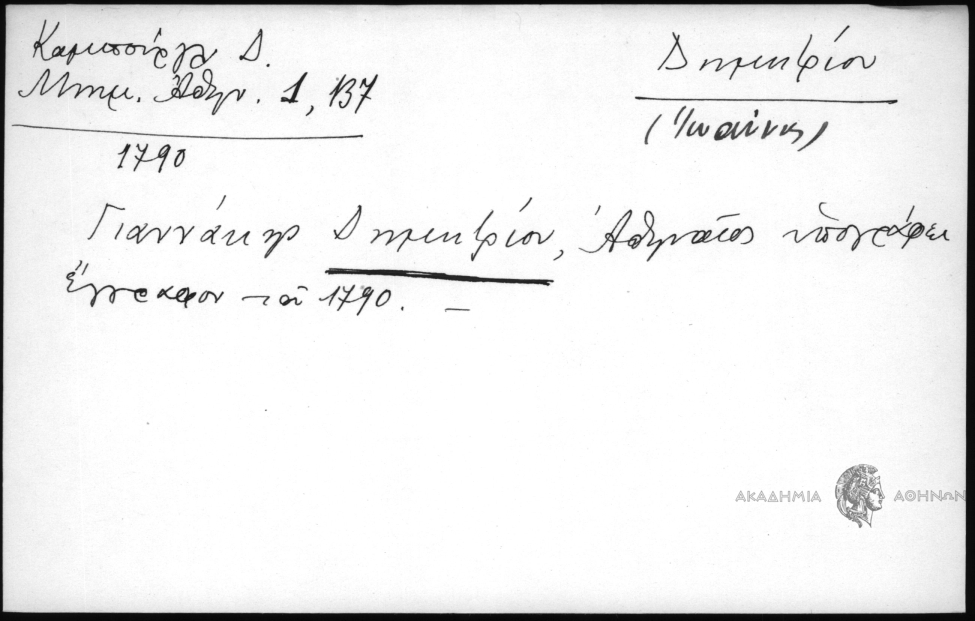 Καμπούργλ Δ.
Μνημ. Ἀθην. 1, 137
1790
Δημητρίου
(Ἰωάννης)
Γιαννάκης Δημητρίου, Ἀθηναῖος ὑπογράφει
ἔγγραφον τοῦ 1790. —
ΑΚΑΔΗΜΙΑ ΑΘΗΝΩΝ